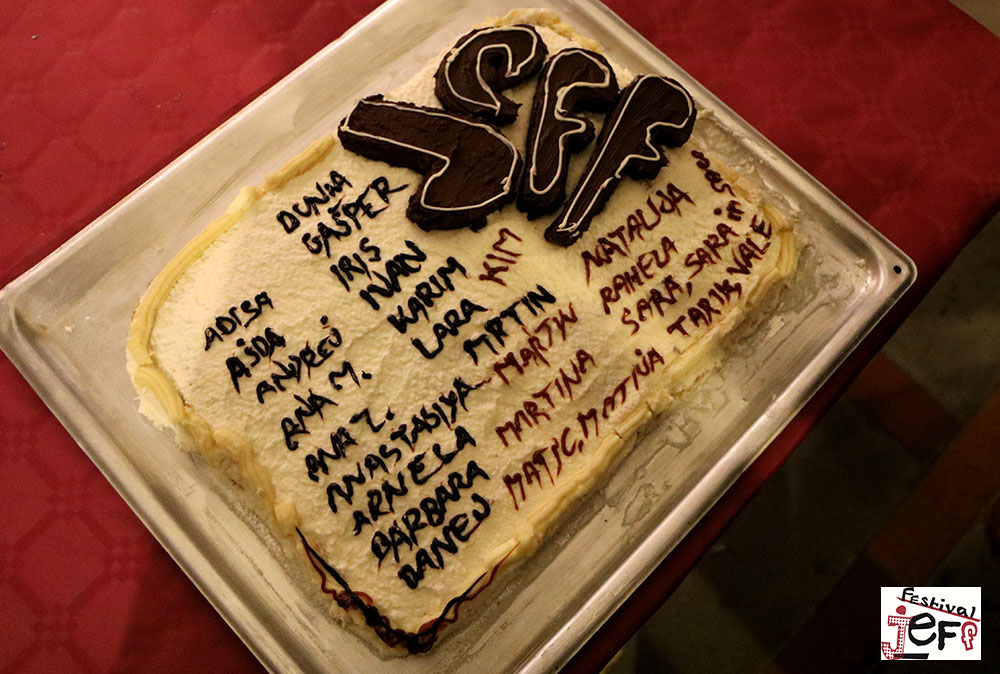 ADISA
AJDA
ANDREJ
ANA M.
ANA Z.
ANASTASIYA
ARNELA
BARBARA
DANEJ
DUNJA
GAŠPER
IRIS
IVAN
KARIM
LARA
KIM
MARTIN
MARTINA
MATIC,
NATALIJA
RAHELA
SARA, SARA in
TARIK, VALE
Festival
JEF